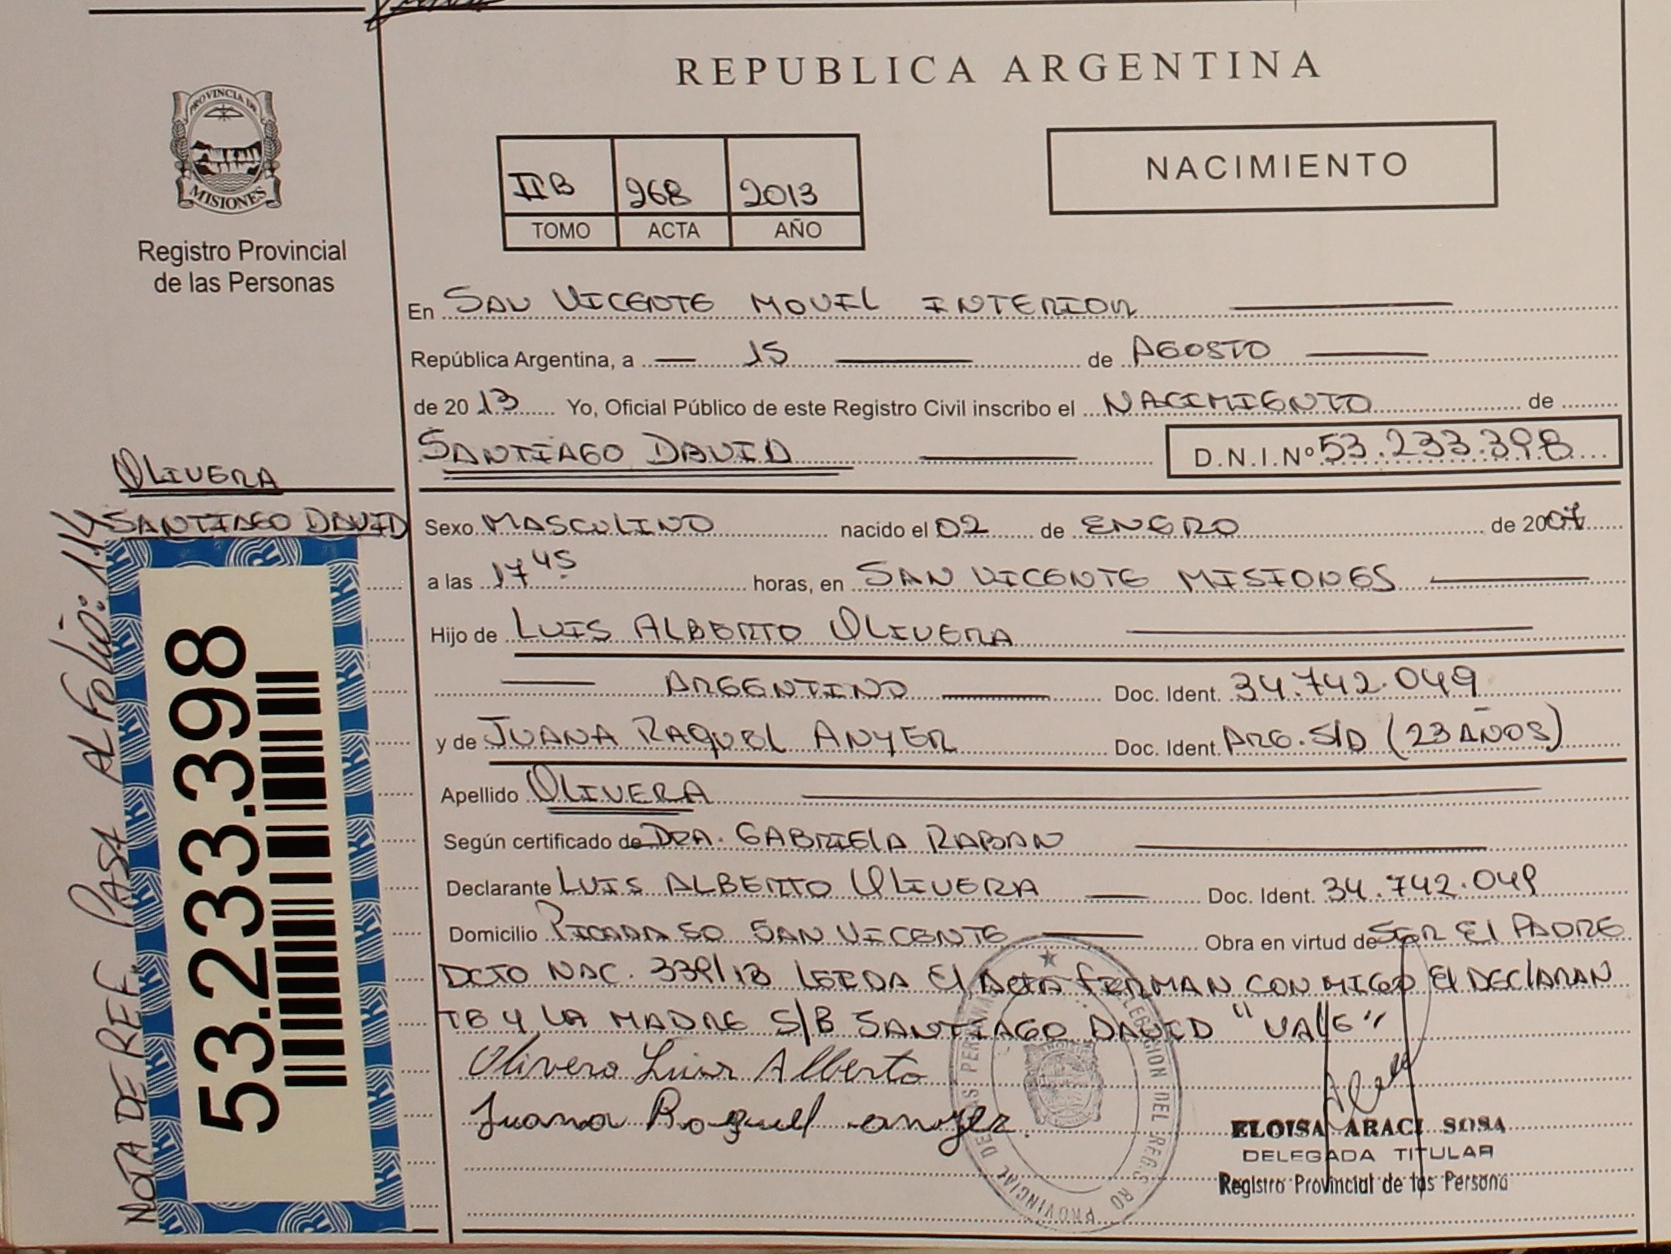 REPUBLICA ARGENTINA
PROVINCIA DE
MISIONES
Registro Provincial
de las Personas
IIB 268 2013
TOMO ACTA AÑO
NACIMIENTO
En SAN VICENTE MOVIL INTERIOR
República Argentina, a 15 de AGOSTO
de 2013 Yo, Oficial Público de este Registro Civil inscribo el NACIMIENTO de
SANTIAGO DAVID D.N.I.Nº 53.233.398
OLIVERA
SANTIAGO DAVID
Sexo MASCULINO nacido el 02 de ENERO de 2007
a las 17 45 horas, en SAN VICENTE MISIONES
Hijo de LUIS ALBERTO OLIVERA
ARGENTINO Doc. Ident. 34.742.049
y de JUANA RAQUEL ANYER Doc. Ident. ARG. S/D (23 AÑOS)
Apellido OLIVERA
Según certificado de DRA. GABRIELA
Declarante LUIS ALBERTO OLIVERA Doc. Ident. 34.742.049
Domicilio PICADA SAN VICENTE Obra en virtud de SER EL PADRE
DCTO NAC. 339/13 LEIDA EL ACTA FIRMAN CONMIGO EL DECLARAN
TE Y LA MADRE S/B SANTIAGO DAVID "VALE"
Olivera Luis Alberto
Juana Raquel anyer
ELOISA ARACI SOSA
DELEGADA TITULAR
Registro Provincial de las Persona
53.233.398
NOTA DE REF. PASA AL FOLIO: 114